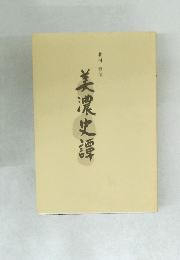 美濃史譚